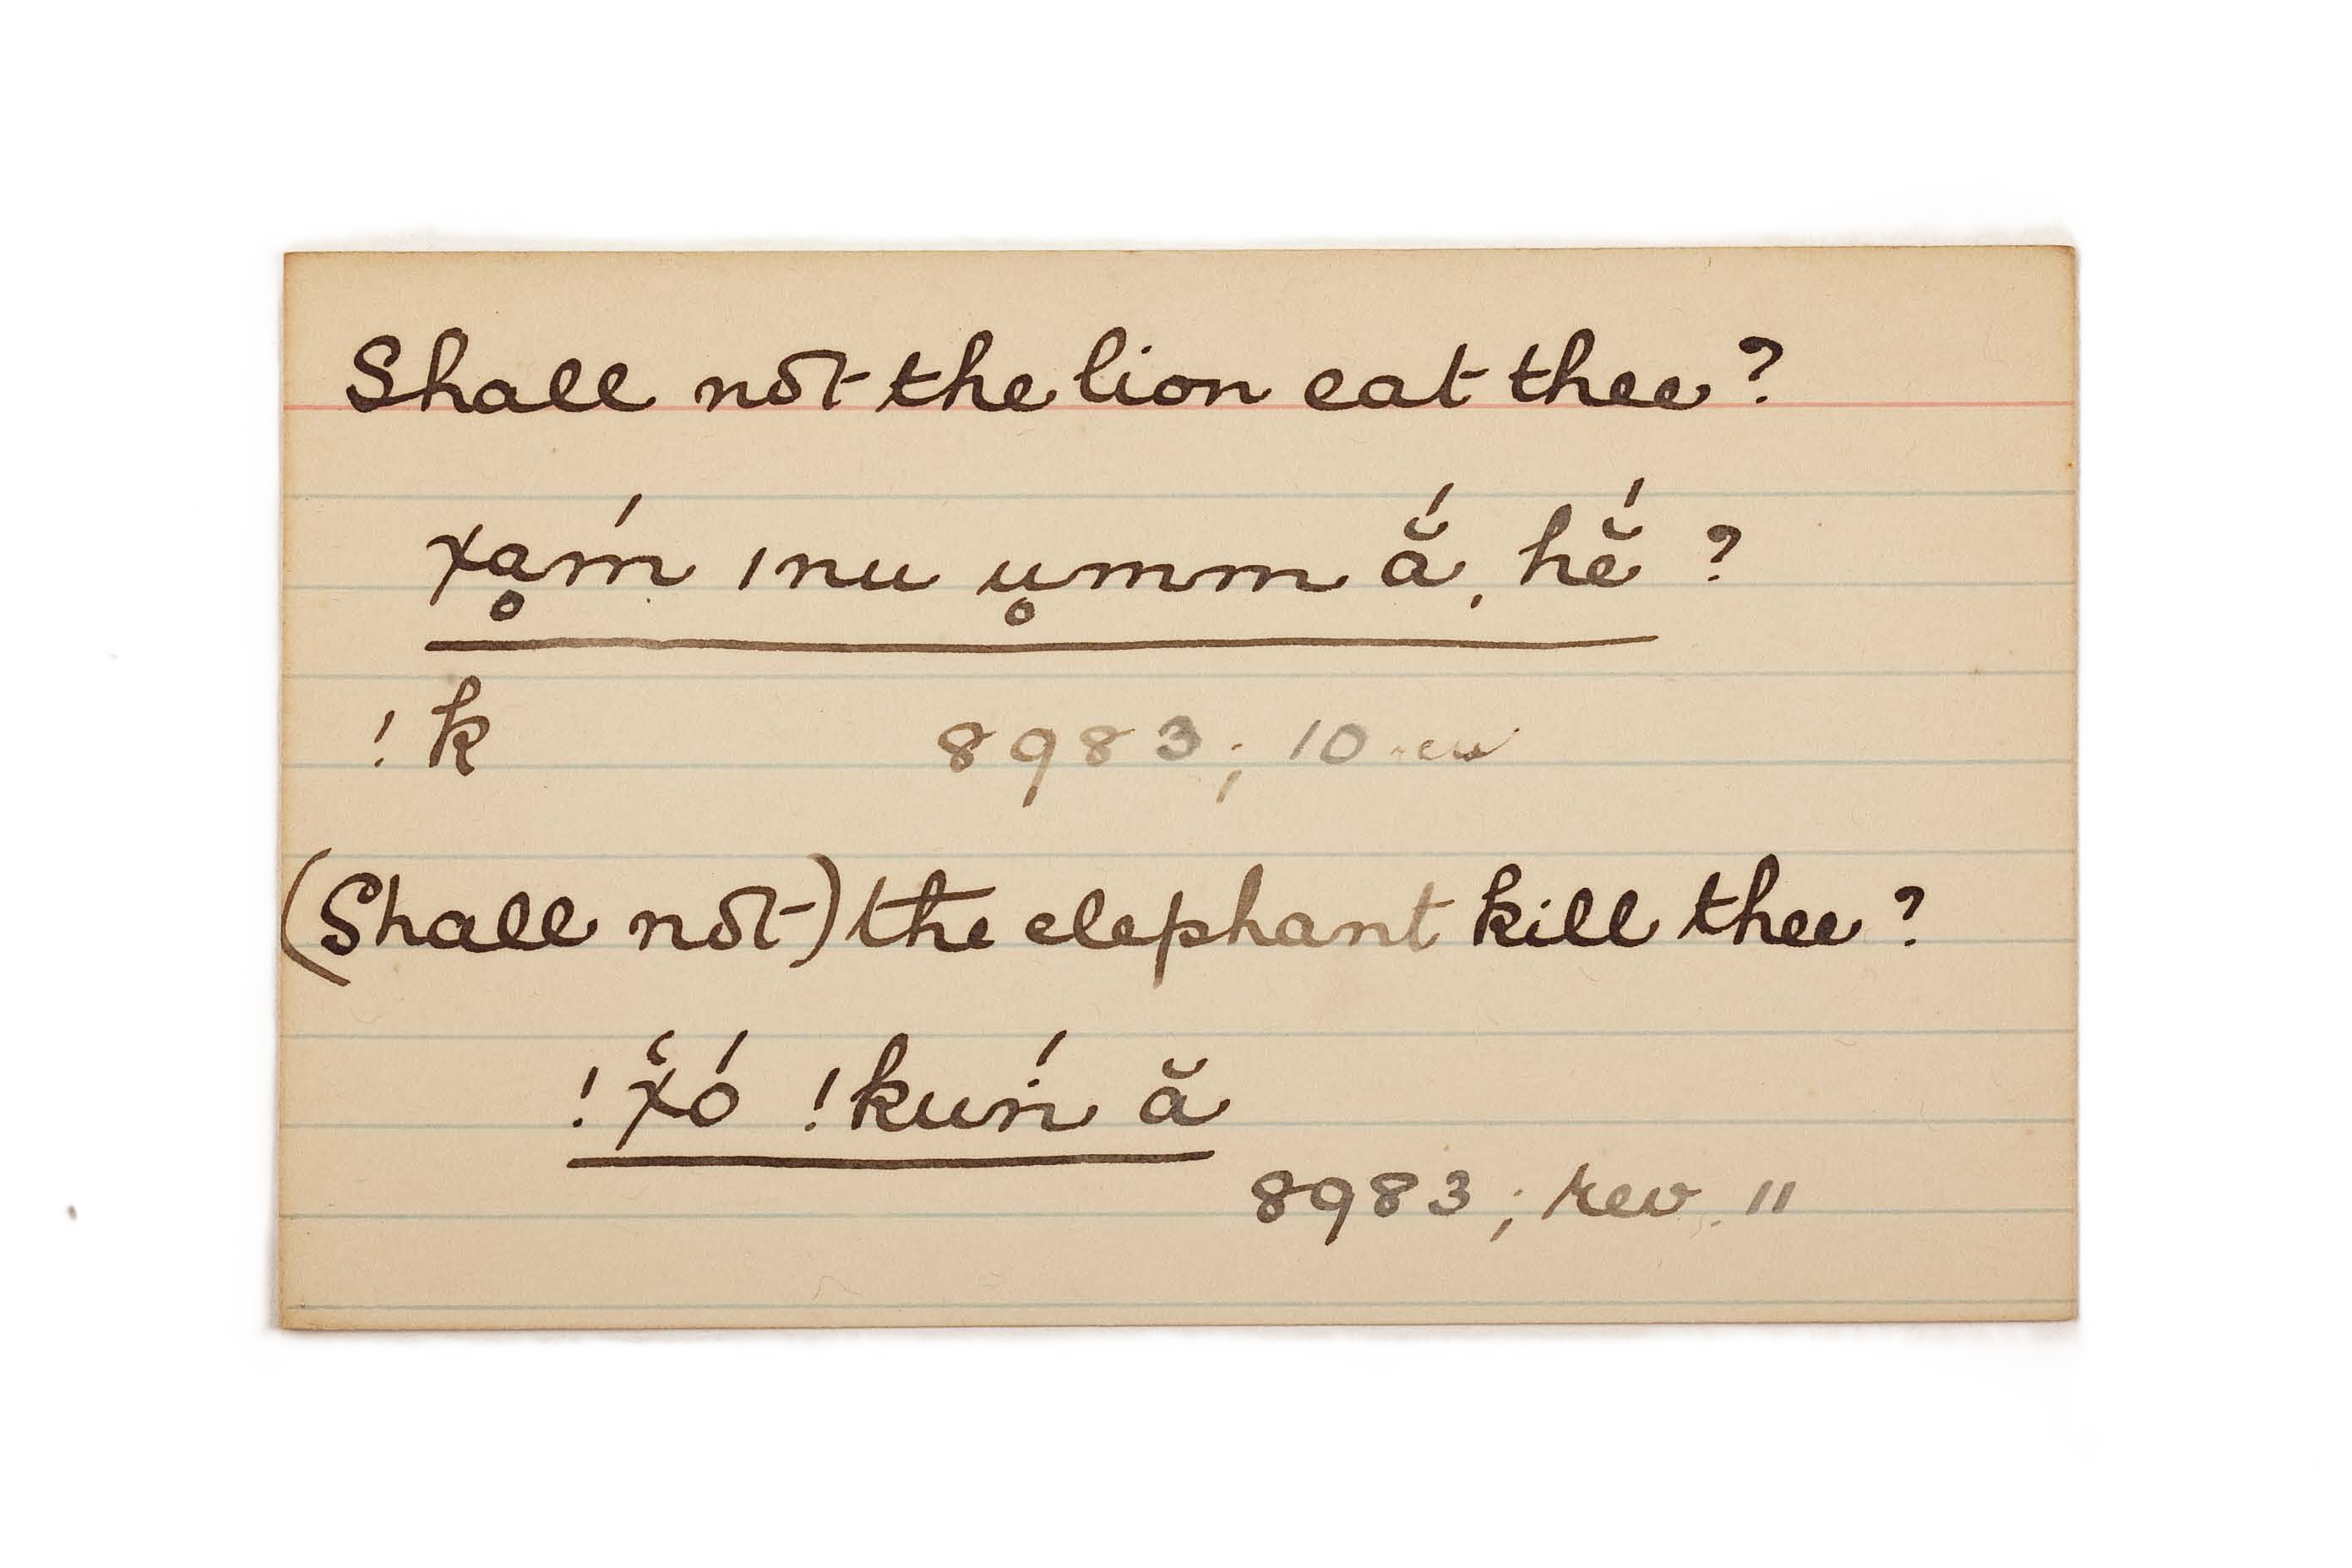 Shall not the lion eat thee?
χḁḿ ınu u̥mm ắ, hĕ́ ?
!k 8983; 10
(Shall not) the elephant kill thee?
!χ̔ó !kuṅ́ ă
8983; rev. 11